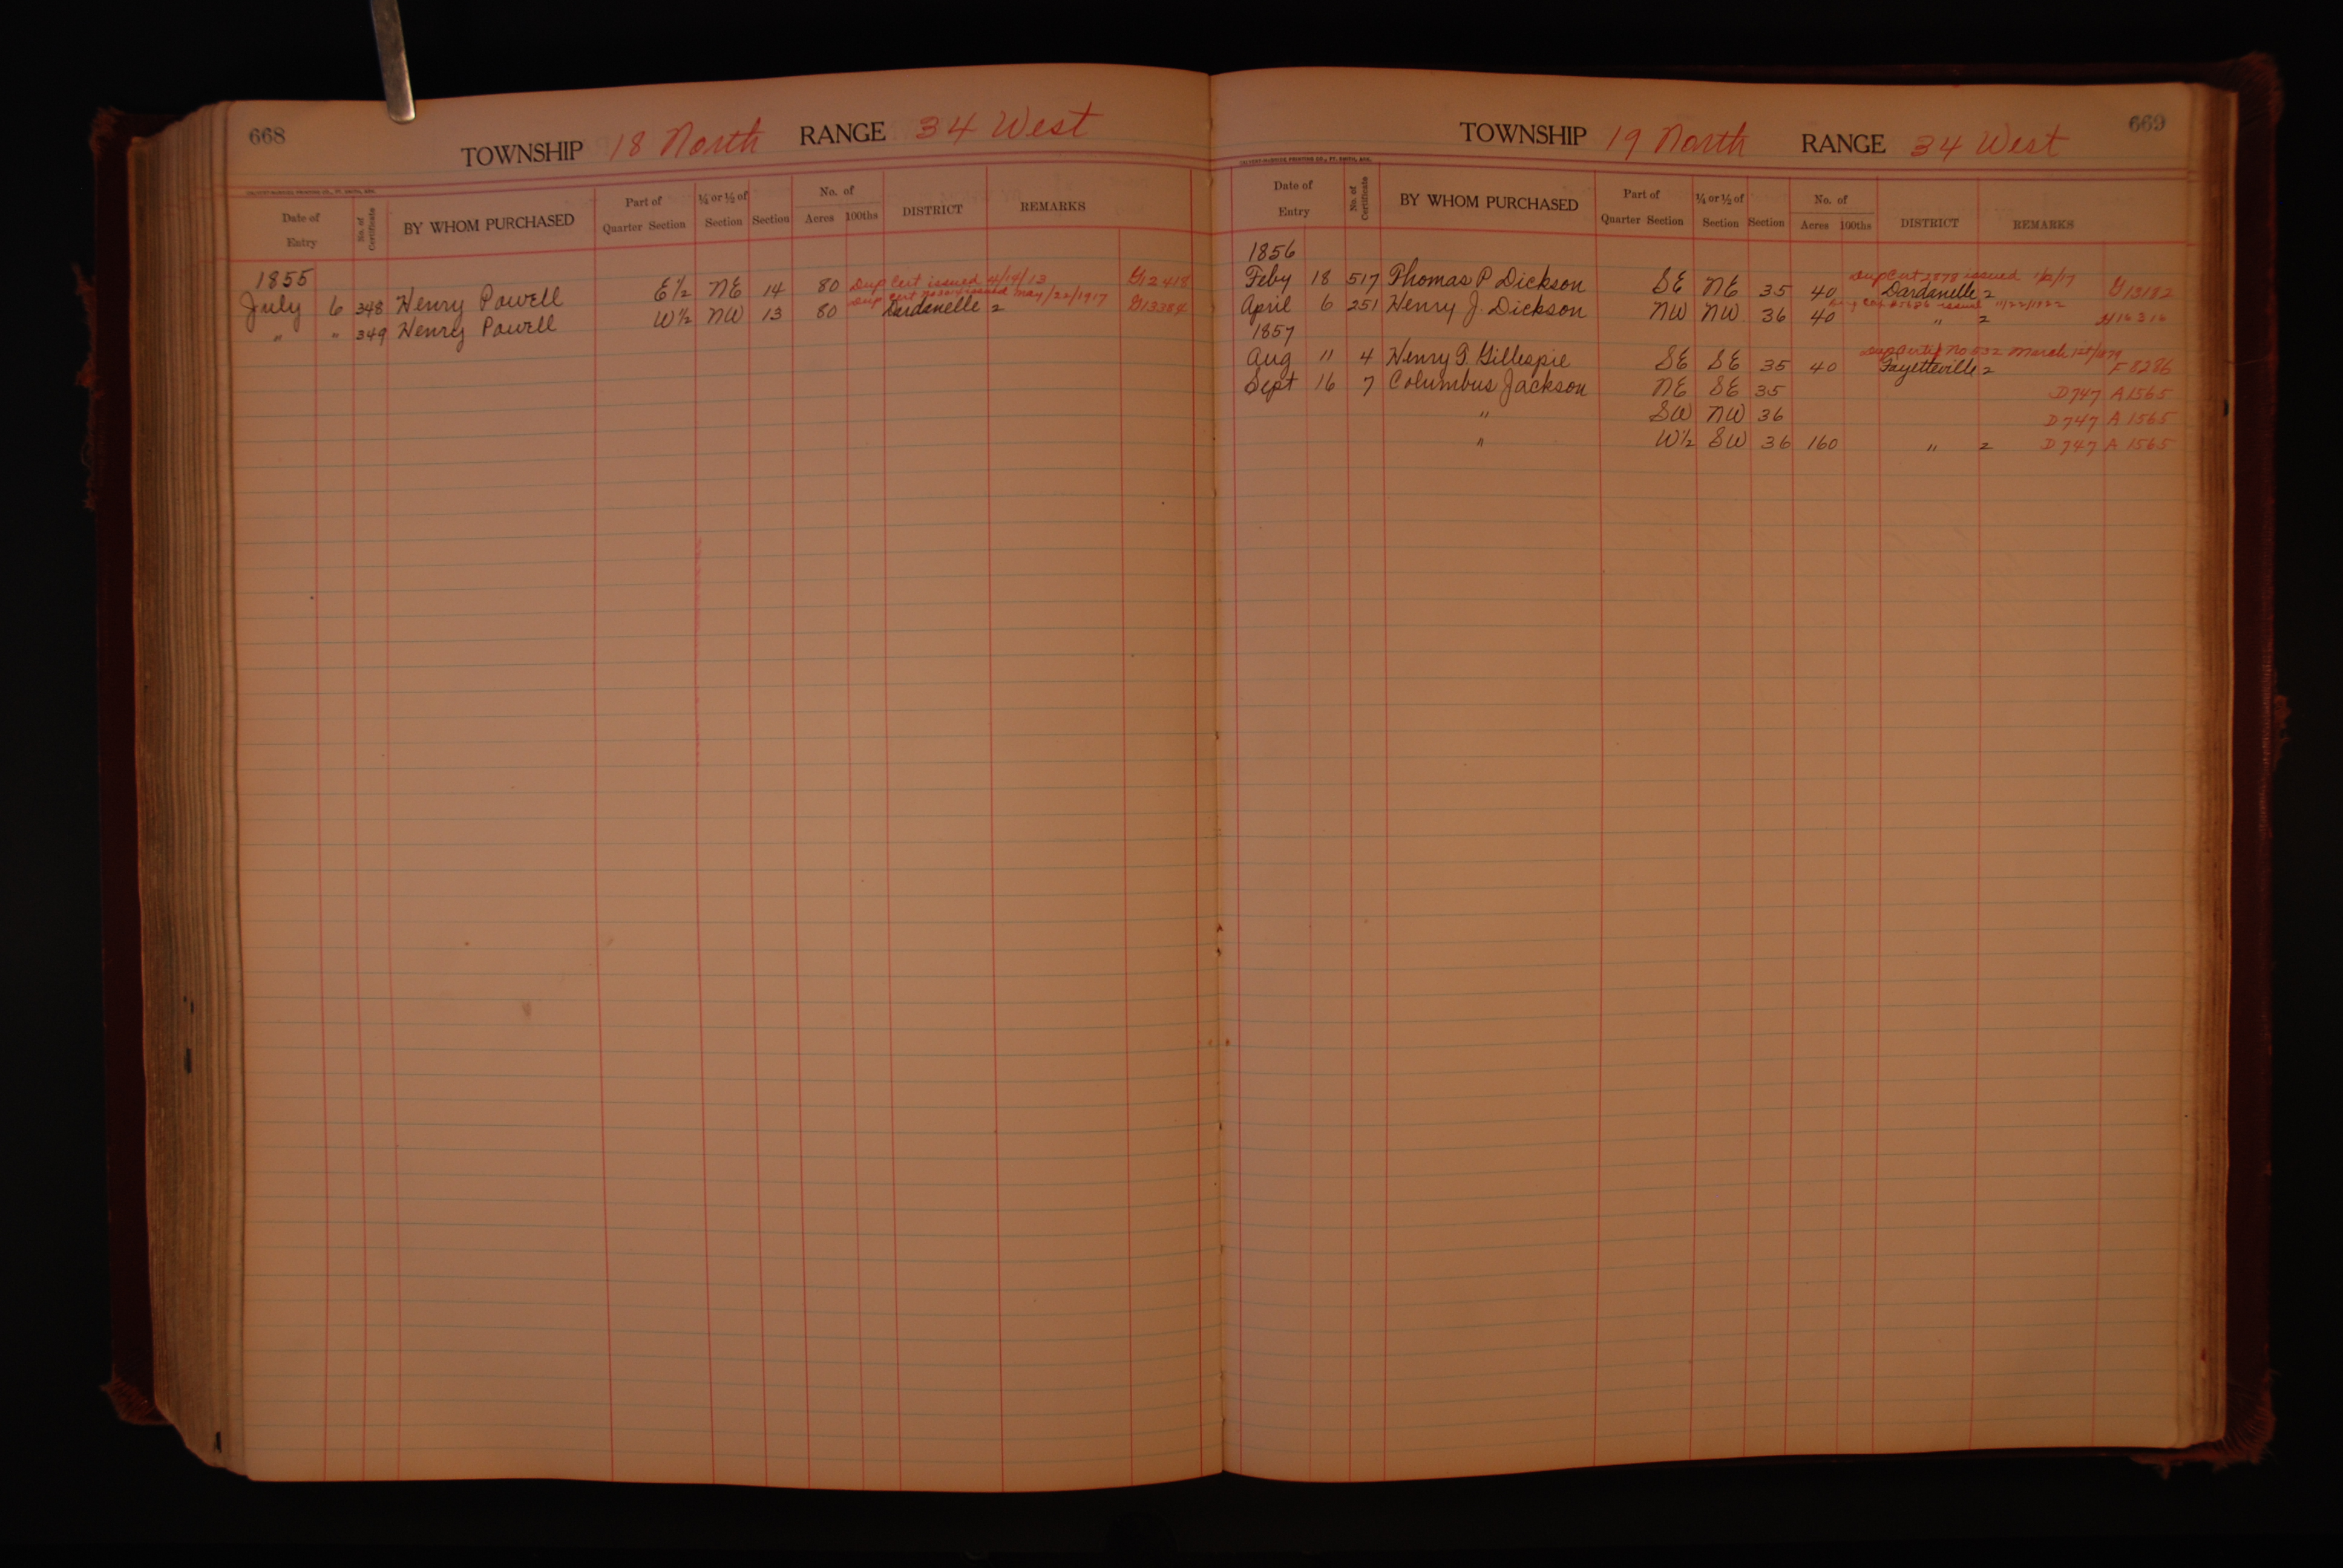 668
TOWNSHIP 18 North RANGE 34 West
Date of Entry No. of Certificate BY WHOM PURCHASED Part of Quarter Section ¼ or ½ of Section Section No. of Acres 100ths DISTRICT REMARKS
1855
Dup Cert issued 4/14/13
July 6 348 Henry Powell E½ NE 14 80 G12418
Dup Cert issued May/22/1917
" " 349 Henry Powell W½ NW 13 80 Dardanelle 2 G13384
669
TOWNSHIP 19 North RANGE 34 West
Date of Entry No. of Certificate BY WHOM PURCHASED Part of Quarter Section ¼ or ½ of Section Section No. of Acres 100ths DISTRICT REMARKS
1856
Dup Cert issued
Feby 18 517 Thomas P Dickson SE NE 35 40 Dardanelle 2 G13182
issued 11/22/1922
April 6 251 Henry J. Dickson NW NW 36 40 " 2 H16316
1857
Dup Certif No 532 March 1st
Aug 11 4 Henry T. Gillespie SE SE 35 40 Fayetteville 2 F8286
Sept 16 7 Columbus Jackson NE SE 35 D747 A1565
" SW NW 36 D747 A1565
" W½ SW 36 160 " 2 D747 A1565